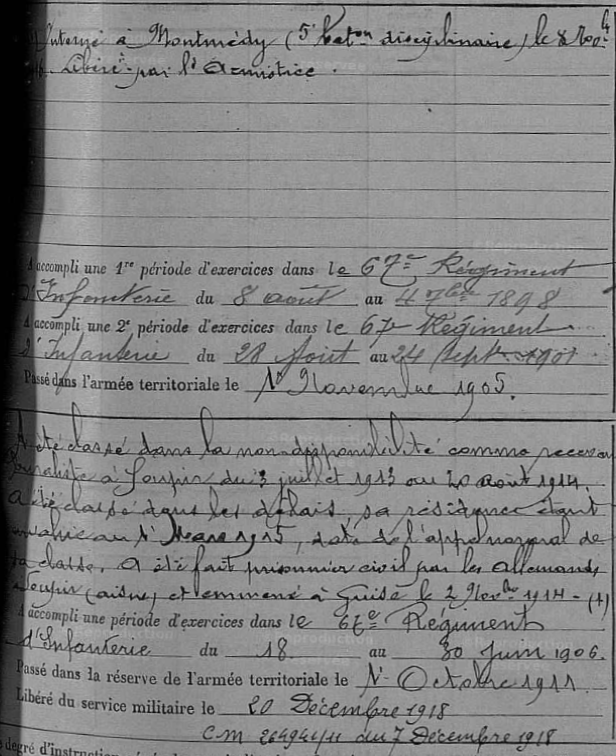 Interné à Montmédy (5e bat.on disciplinaire) le 8 Nov 4
Libéré par l'Armistice.
A accompli une 1re période d'exercices dans le 67e Régiment
d'Infanterie du 8 août au 4 7bre 1898
A accompli une 2e période d'exercices dans le 67e Régiment
d'Infanterie du 28 Août au 24 Sept. 1901
Passé dans l'armée territoriale le 1er Novembre 1905.
A été classé dans la non-disponibilité comme receveur
buraliste à Soupir du 3 juillet 1913 au 20 août 1914.
A été classé dans les délais, sa résidence étant
envahie au 1er Mars 1915, date de l'appel normal de
sa classe. A été fait prisonnier civil par les Allemands
Soupir (aisne) et emmené à Guise le 2 Nov.bre 1914 - (1)
A accompli une période d'exercices dans le 67e Régiment
d'Infanterie du 18 au 30 Juin 1906.
Passé dans la réserve de l'armée territoriale le 1er Octobre 1911
Libéré du service militaire le 20 Décembre 1918
CM du 7 Décembre 1918
degré d'instruction